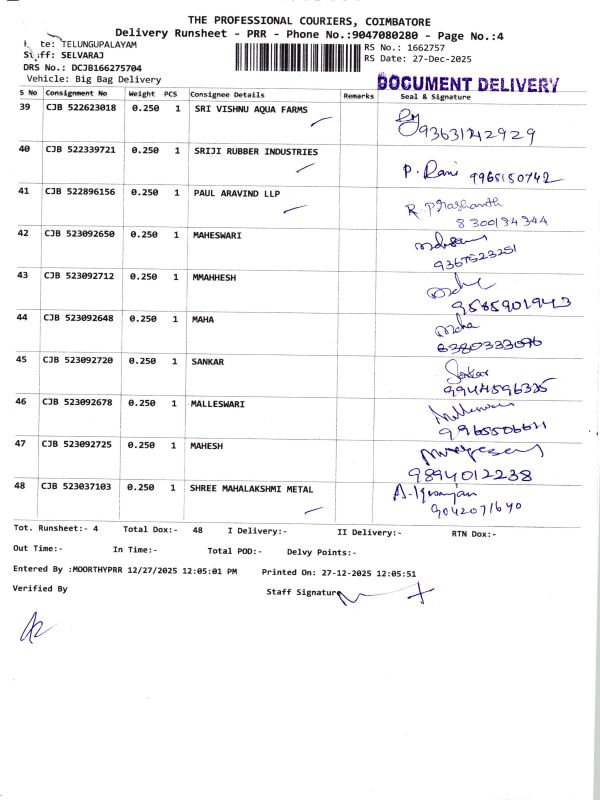 THE PROFESSIONAL COURIERS, COIMBATORE
Delivery Runsheet - PRR - Phone No.:9047080280 - Page No.:4
te: TELUNGUPALAYAM
RS No.: 1662757
ff: SELVARAJ
RS Date: 27-Dec-2025
DRS No.: DCJB166275704
Vehicle: Big Bag Delivery
DOCUMENT DELIVERY
S No Consignment No Weight PCS Consignee Details Remarks Seal & Signature
39 CJB 522623018 0.250 1 SRI VISHNU AQUA FARMS
9363142929
40 CJB 522339721 0.250 1 SRIJI RUBBER INDUSTRIES
P. Rani 9965150742
41 CJB 522896156 0.250 1 PAUL ARAVIND LLP
R. Prashanth
8300134344
42 CJB 523092650 0.250 1 MAHESWARI
43 CJB 523092712 0.250 1 MMAHHESH
9585901943
44 CJB 523092648 0.250 1 MAHA
Maha
6380333096
45 CJB 523092720 0.250 1 SANKAR
Sankar
46 CJB 523092678 0.250 1 MALLESWARI
Malleswari
47 CJB 523092725 0.250 1 MAHESH
9894012238
48 CJB 523037103 0.250 1 SHREE MAHALAKSHMI METAL
9042071640
Tot. Runsheet:- 4 Total Dox:- 48 I Delivery:- II Delivery:- RTN Dox:-
Out Time:- In Time:- Total POD:- Delvy Points:-
Entered By :MOORTHYPRR 12/27/2025 12:05:01 PM Printed On: 27-12-2025 12:05:51
Verified By Staff Signature